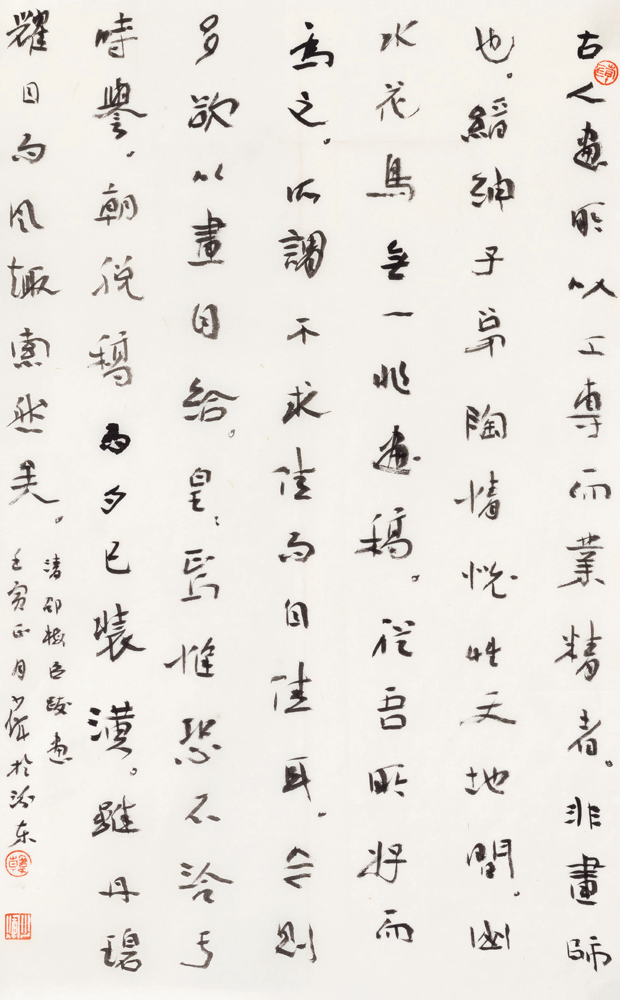 古人畫所以工專而業精者。非畫師
也。縉紳子弟陶情悦性天地間。幽
水花鳥無一非畫稿。從吾所好而
為之。所謂不求佳而自佳耳。今則
多欲以畫自給。皇〻焉惟恐不洽于
時譽。朝脱稿而夕已裝潢。雖丹碧
耀目而風趣索然矣。
清邵梅臣跋畫
壬寅正月 於汾东